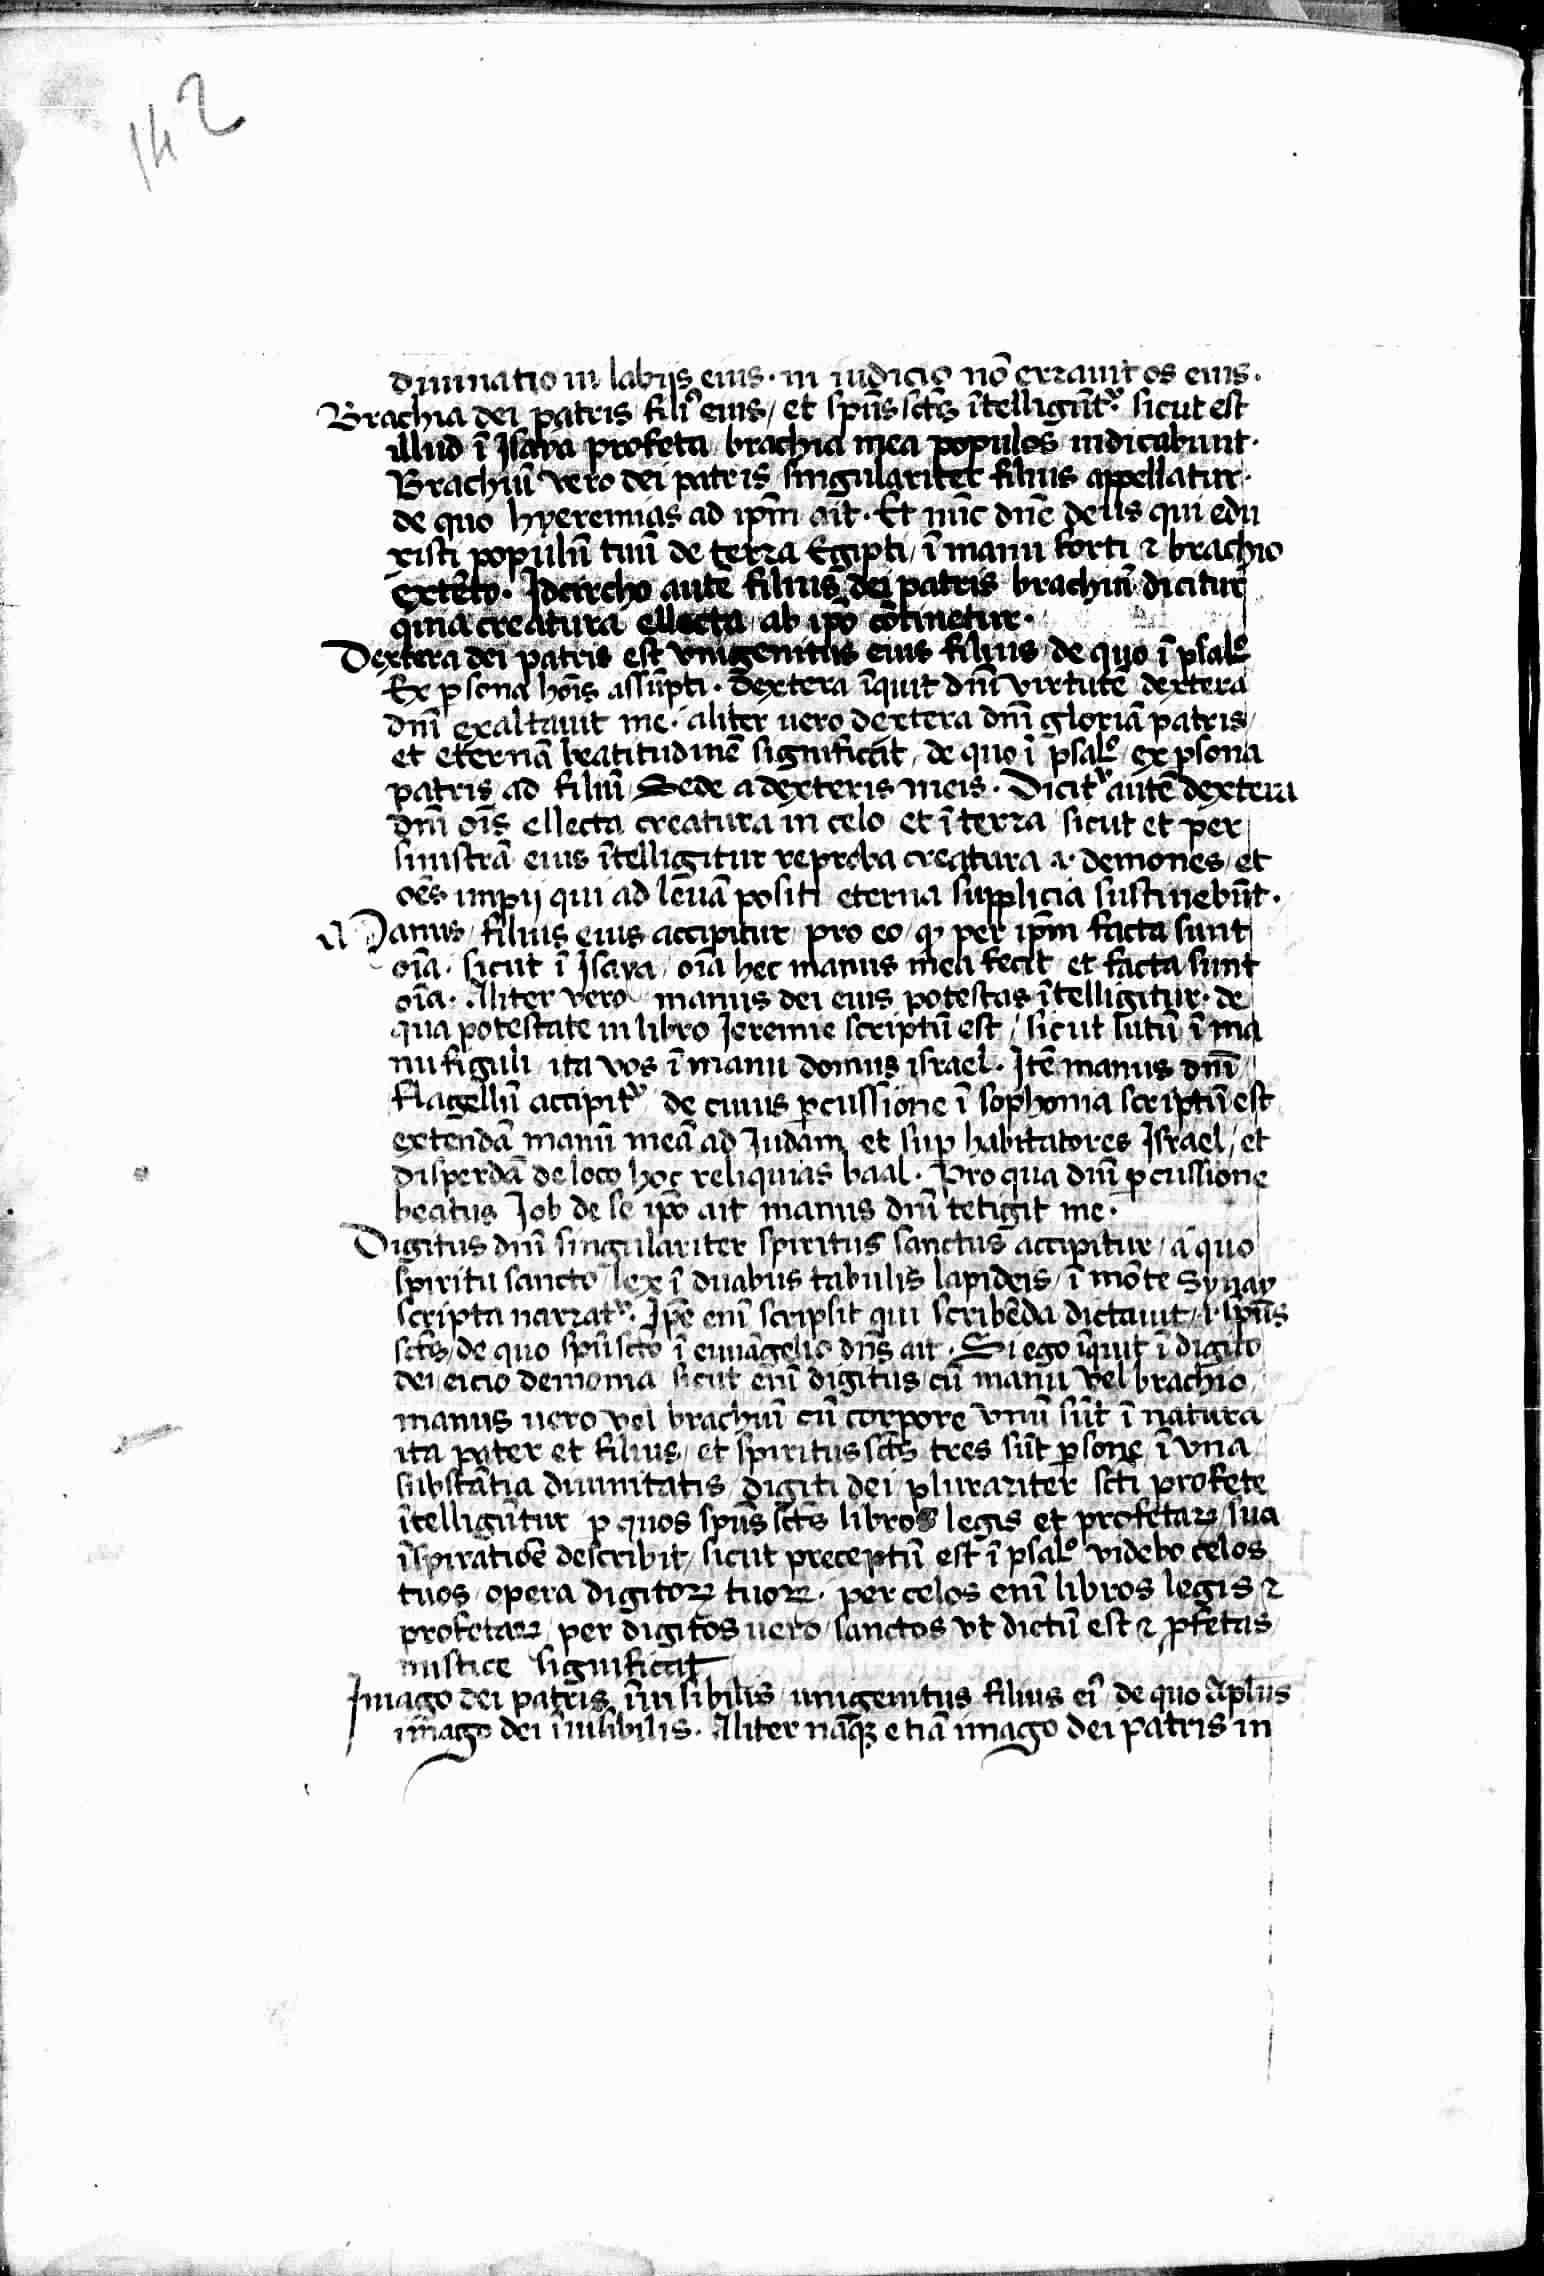 142
diuinatio in labijs eius · in iudicio nō erzauit os eius ·
Brachia dei patris filiꝰ eius / et spūs sct̄s ītelligūtʳ sicut est
illud ī Isaya profeta brachia mea populos iudicabunt ·
Brachiū vero dei patris singulariter filius appellatur ·
de quo hyeremias ad ip̄m ait · Et nūc dn̄e deus qui edu
xisti populū tuū de terza Egipti / ī manu forti ⁊ brachio
extēto · Idcircho autē filius dei patris brachiū dicitur
quia creatura ellecta ab ip̄o cōtinetur ·
Dextera dei patris est vnigenitus eius filius de quo ī psalº
Ex ꝑsona hoīs assūpti · dextera īquit dn̄i virtutē dextera
dn̄i exaltauit me · aliter uero dextera dn̄i gloriā patris /
et eternā beatitudinē significat / de quo ī psalº / ex ꝑsona
patris ad filiū / Sede a dexteris meis · Dicitʳ autē dextera
dn̄i oīs ellecta creatura in celo et ī terza sicut et per
sinistrā eius ītelligitur reproba creatura .i. demones / et
oēs impij qui ad leuā positi eterna supplicia sustinebūt ·
Manus / filius eius accipitur pro eo / ꝙ per ip̄m facta sunt
oīa · sicut ī Isaya / oīa hec manus mea fecit et facta sunt
oīa · Aliter vero manus dei eius potestas ītelligitur · de
qua potestate in libro Ieremie scriptū est / sicut lutū ī ma
nu figuli / ita vos ī manu domus israel · Itē manus dn̄i
flagellū accipitʳ de cuius ꝑcussione ī sophonia scriptū est
extendā manū meā ad Iudam et suꝑ habitatores Israel / et
disperdā de loco hoc reliquias baal · Pro qua dn̄i ꝑcussione
beatus Iob de se ip̄o ait manus dn̄i tetigit me ·
Digitus dn̄i singulariter spiritus sanctus accipitur / a quo
spiritu sancto lex ī duabus tabulis lapideis / ī mōte Synay
scripta narzatʳ · Ip̄e enī scripsit qui scribēda dictauit / .i. sp̄us
sct̄s / de quo spū sct̄o ī euuāgelio dn̄s ait · Si ego īquit ī digito
dei eicio demonia sicut enī digitus cū manu vel brachio
manus uero vel brachiū cū corpore vnū sūt ī natura
ita pater et filius / et spiritus sct̄s tres sūt ꝑsone ī vna
substātia diuinitatis / digiti dei plurariter sct̄i profete
ītelligūtur ꝑ quos spūs sct̄s libros legis et profetaꝝ / sua
īspiratiōe describit / sicut preceptū est ī psalº videbo celos
tuos / opera digitoꝝ tuoꝝ · per celos enī libros legis ⁊
profetaꝝ / per digitos uero sanctos vt dictū est ⁊ ꝓfetas
mistice significat
Imago dei patris īuisibilis / unigenitus filius eiꝰ de quo Aplus
imago dei īuisibilis · Aliter nāqꝫ etiā imago dei patris in